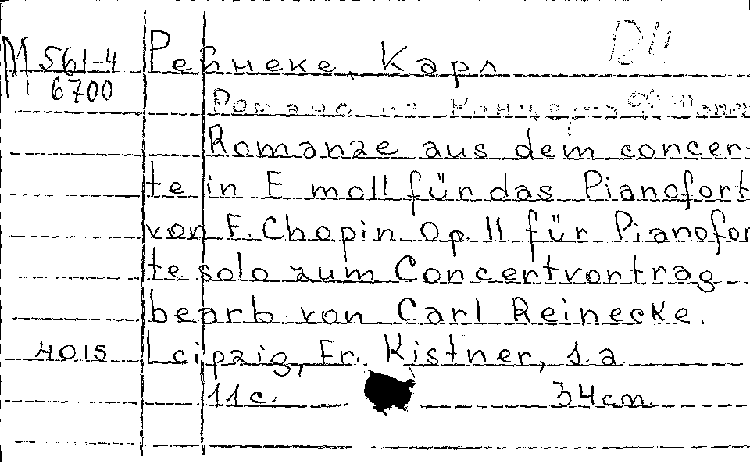 М 561-4 Рейнеке, Карл
6700
Романс из Концерта
Romanze aus dem concer-
te in E moll für das Pianofort
von F. Chopin. Op. 11 für Pianofor
te solo zum Concertvortrag
bearb von Carl Reinecke.
4015 Leipzig, Fr. Kistner, s.a
11 c. 34 cm